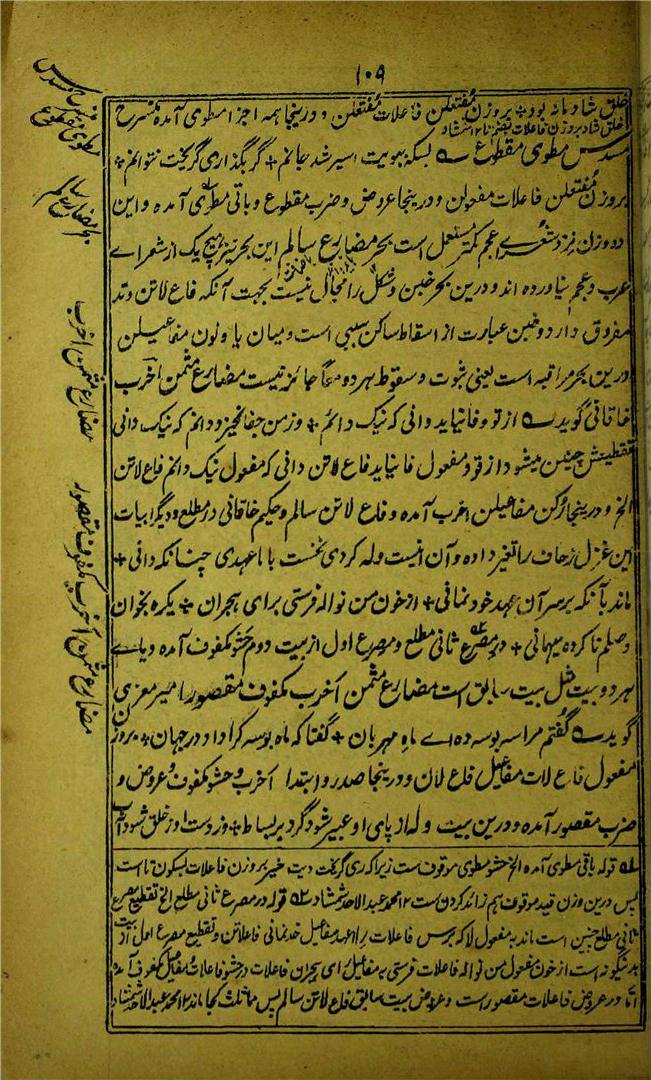 ۱۰۹
خلق شاد مانه بود + بروزن مفتعلن فاعلات مفتعلن و درینجا همه اجزا مطوی آمده منسرح
خلق شاد بروزن فاعلات
مسدس مطوی مقطوع بسکه ببویت اسیر شد جانم + گر بگذاری گریخت نتوانم +
بروزن مفتعلن فاعلات مفعولن و درینجا عروض و ضرب مقطوع و باقی مطوی آمده و این
دو وزن نزد شعرای عجم کمتر مستعمل است بحر مضارع سالم این بحر نیز هیچ یک از شعرای
عرب و عجم نیاورده اند و درین بحر خبن و شکل را مجال نیست بجهت آنکه فاع لاتن وتد
مفروق دارد و خبن عبارت از اسقاط ساکن سببی است و میان یا و نون مفاعیلن
درین بحر مراقبه است یعنی ثبوت و سقوط هر دو معاً جائز نیست مضارع مثمن اخرب
خاقانی گوید از تو وفا نیاید دانی که نیک دانم + وز من جفا نخیزد دانم که نیک دانی
تقطیعش چنین میشود از تو مفعول فا نیاید فاع لاتن دانی که مفعول نیک دانم فاع لاتن
الخ و درینجا رکن مفاعیلن اخرب آمده و فاع لاتن سالم و حکیم خاقانی در مطلع و دیگر ابیات
این غزل زحاف را تغیر داده و آن اینست وله کردی نخست با ما عهدی چنانکه دانی +
ماند بآنکه بر سر آن عهد خود نمانی + از خون من نواله فرستی برای هجران + یکره بخوان
وصلم ناکرده میهمانی + در مصرع ثانی مطلع و مصرع اول از بیت دوم حشو مکفوف آمده و باقی
هر دو بیت مثل بیت سابق است مضارع مثمن اخرب مکفوف مقصور امیر معزی
گوید گفتم مرا سه بوسه ده ای ماه مهربان + گفتا که ماه بوسه کرا داد در جهان + بروزن
مفعول فاع لات مفاعیل فاع لان و درینجا صدر و ابتدا اخرب و حشو مکفوف و عروض و
ضرب مقصور آمده و درین بیت وله از پای او عبیر شود گرد بر بساط + وز دست او ز خلق شود آب
قوله باقی مطوی آمده الخ حشو مطوی موقوف است زیرا که ری گریخت دبت خیر بروزن فاعلات بسکون تا است
پس درین وزن قید موقوف هم زائد کردن است ۱۲ محمد عبد الاحد شمشاد قوله در مصرع ثانی مطلع الخ تقطیع مصرع
ثانی مطلع چنین است ماند به مفعول فاعلات مفاعیل خد نمانی فاعلاتن و تقطیع مصرع اول از بیت
بدینگونه است از خون مفعول من نواله فاعلات فرستی به مفاعیل رای هجران فاعلات در حشو فاعلات و مفاعیل مکفوف آمده
اما در عروض فاعلات مقصور است و عروض بیت سابق فاع لاتن سالم پس مماثلت کجا ماند ۱۲ محمد عبد الاحد شمشاد
مطوی مقطوع
بحر مضارع سالم
مضارع مثمن اخرب
مضارع مثمن اخرب مکفوف مقصور